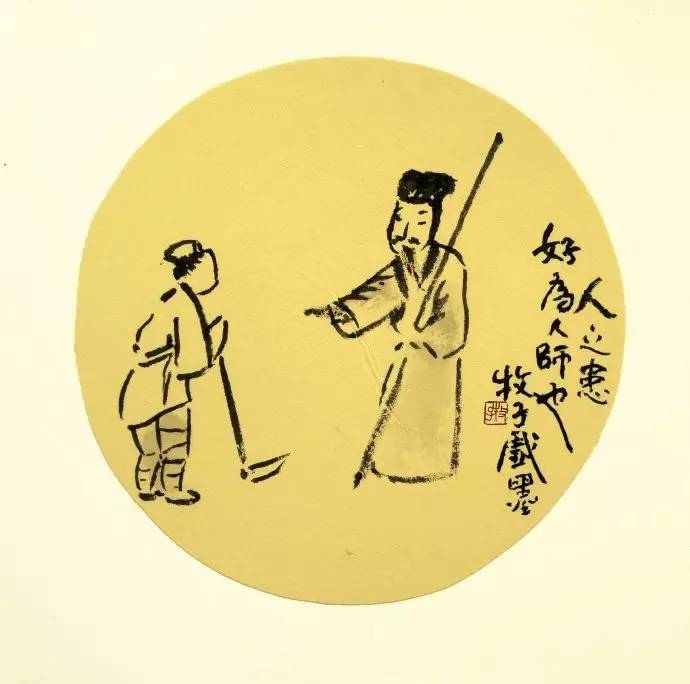 人之患
好為人師也
牧子戲墨